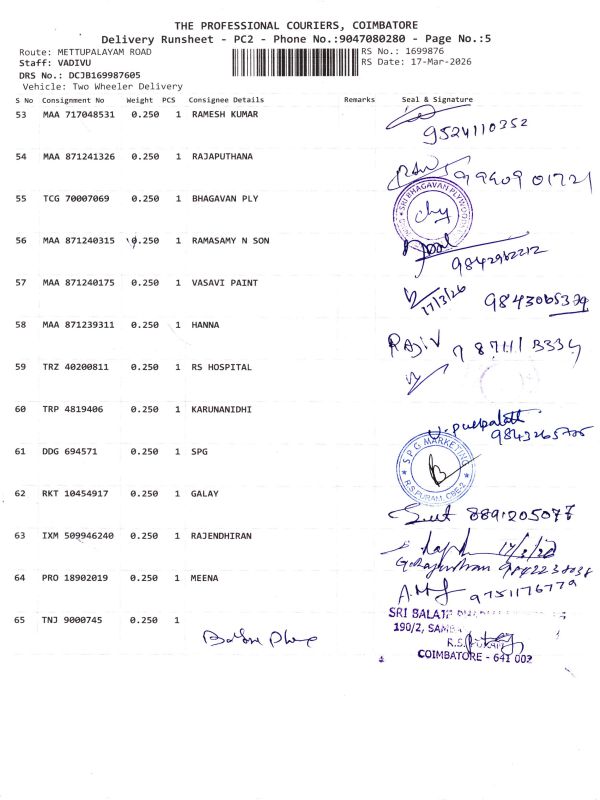 THE PROFESSIONAL COURIERS, COIMBATORE
Delivery Runsheet - PC2 - Phone No.:9047080280 - Page No.:5
Route: METTUPALAYAM ROAD RS No.: 1699876
Staff: VADIVU RS Date: 17-Mar-2026
DRS No.: DCJB169987605
Vehicle: Two Wheeler Delivery
S No Consignment No Weight PCS Consignee Details Remarks Seal & Signature
53 MAA 717048531 0.250 1 RAMESH KUMAR
9524110352
54 MAA 871241326 0.250 1 RAJAPUTHANA
9940901721
55 TCG 70007069 0.250 1 BHAGAVAN PLY
SRI BHAGAVAN PLYWOOD
56 MAA 871240315 0.250 1 RAMASAMY N SON
9842962212
57 MAA 871240175 0.250 1 VASAVI PAINT
17/3/26 9843065329
58 MAA 871239311 0.250 1 HANNA
RAJIV
59 TRZ 40200811 0.250 1 RS HOSPITAL
60 TRP 4819406 0.250 1 KARUNANIDHI
9843265785
61 DDG 694571 0.250 1 SPG
SPG MARKETING
R.S.PURAM, CBE-2
62 RKT 10454917 0.250 1 GALAY
8891205077
63 IXM 509946240 0.250 1 RAJENDHIRAN
9842238038
64 PRO 18902019 0.250 1 MEENA
9751176779
65 TNJ 9000745 0.250 1
SRI BALAJI
190/2,
R.S. PURAM
COIMBATORE - 641 002